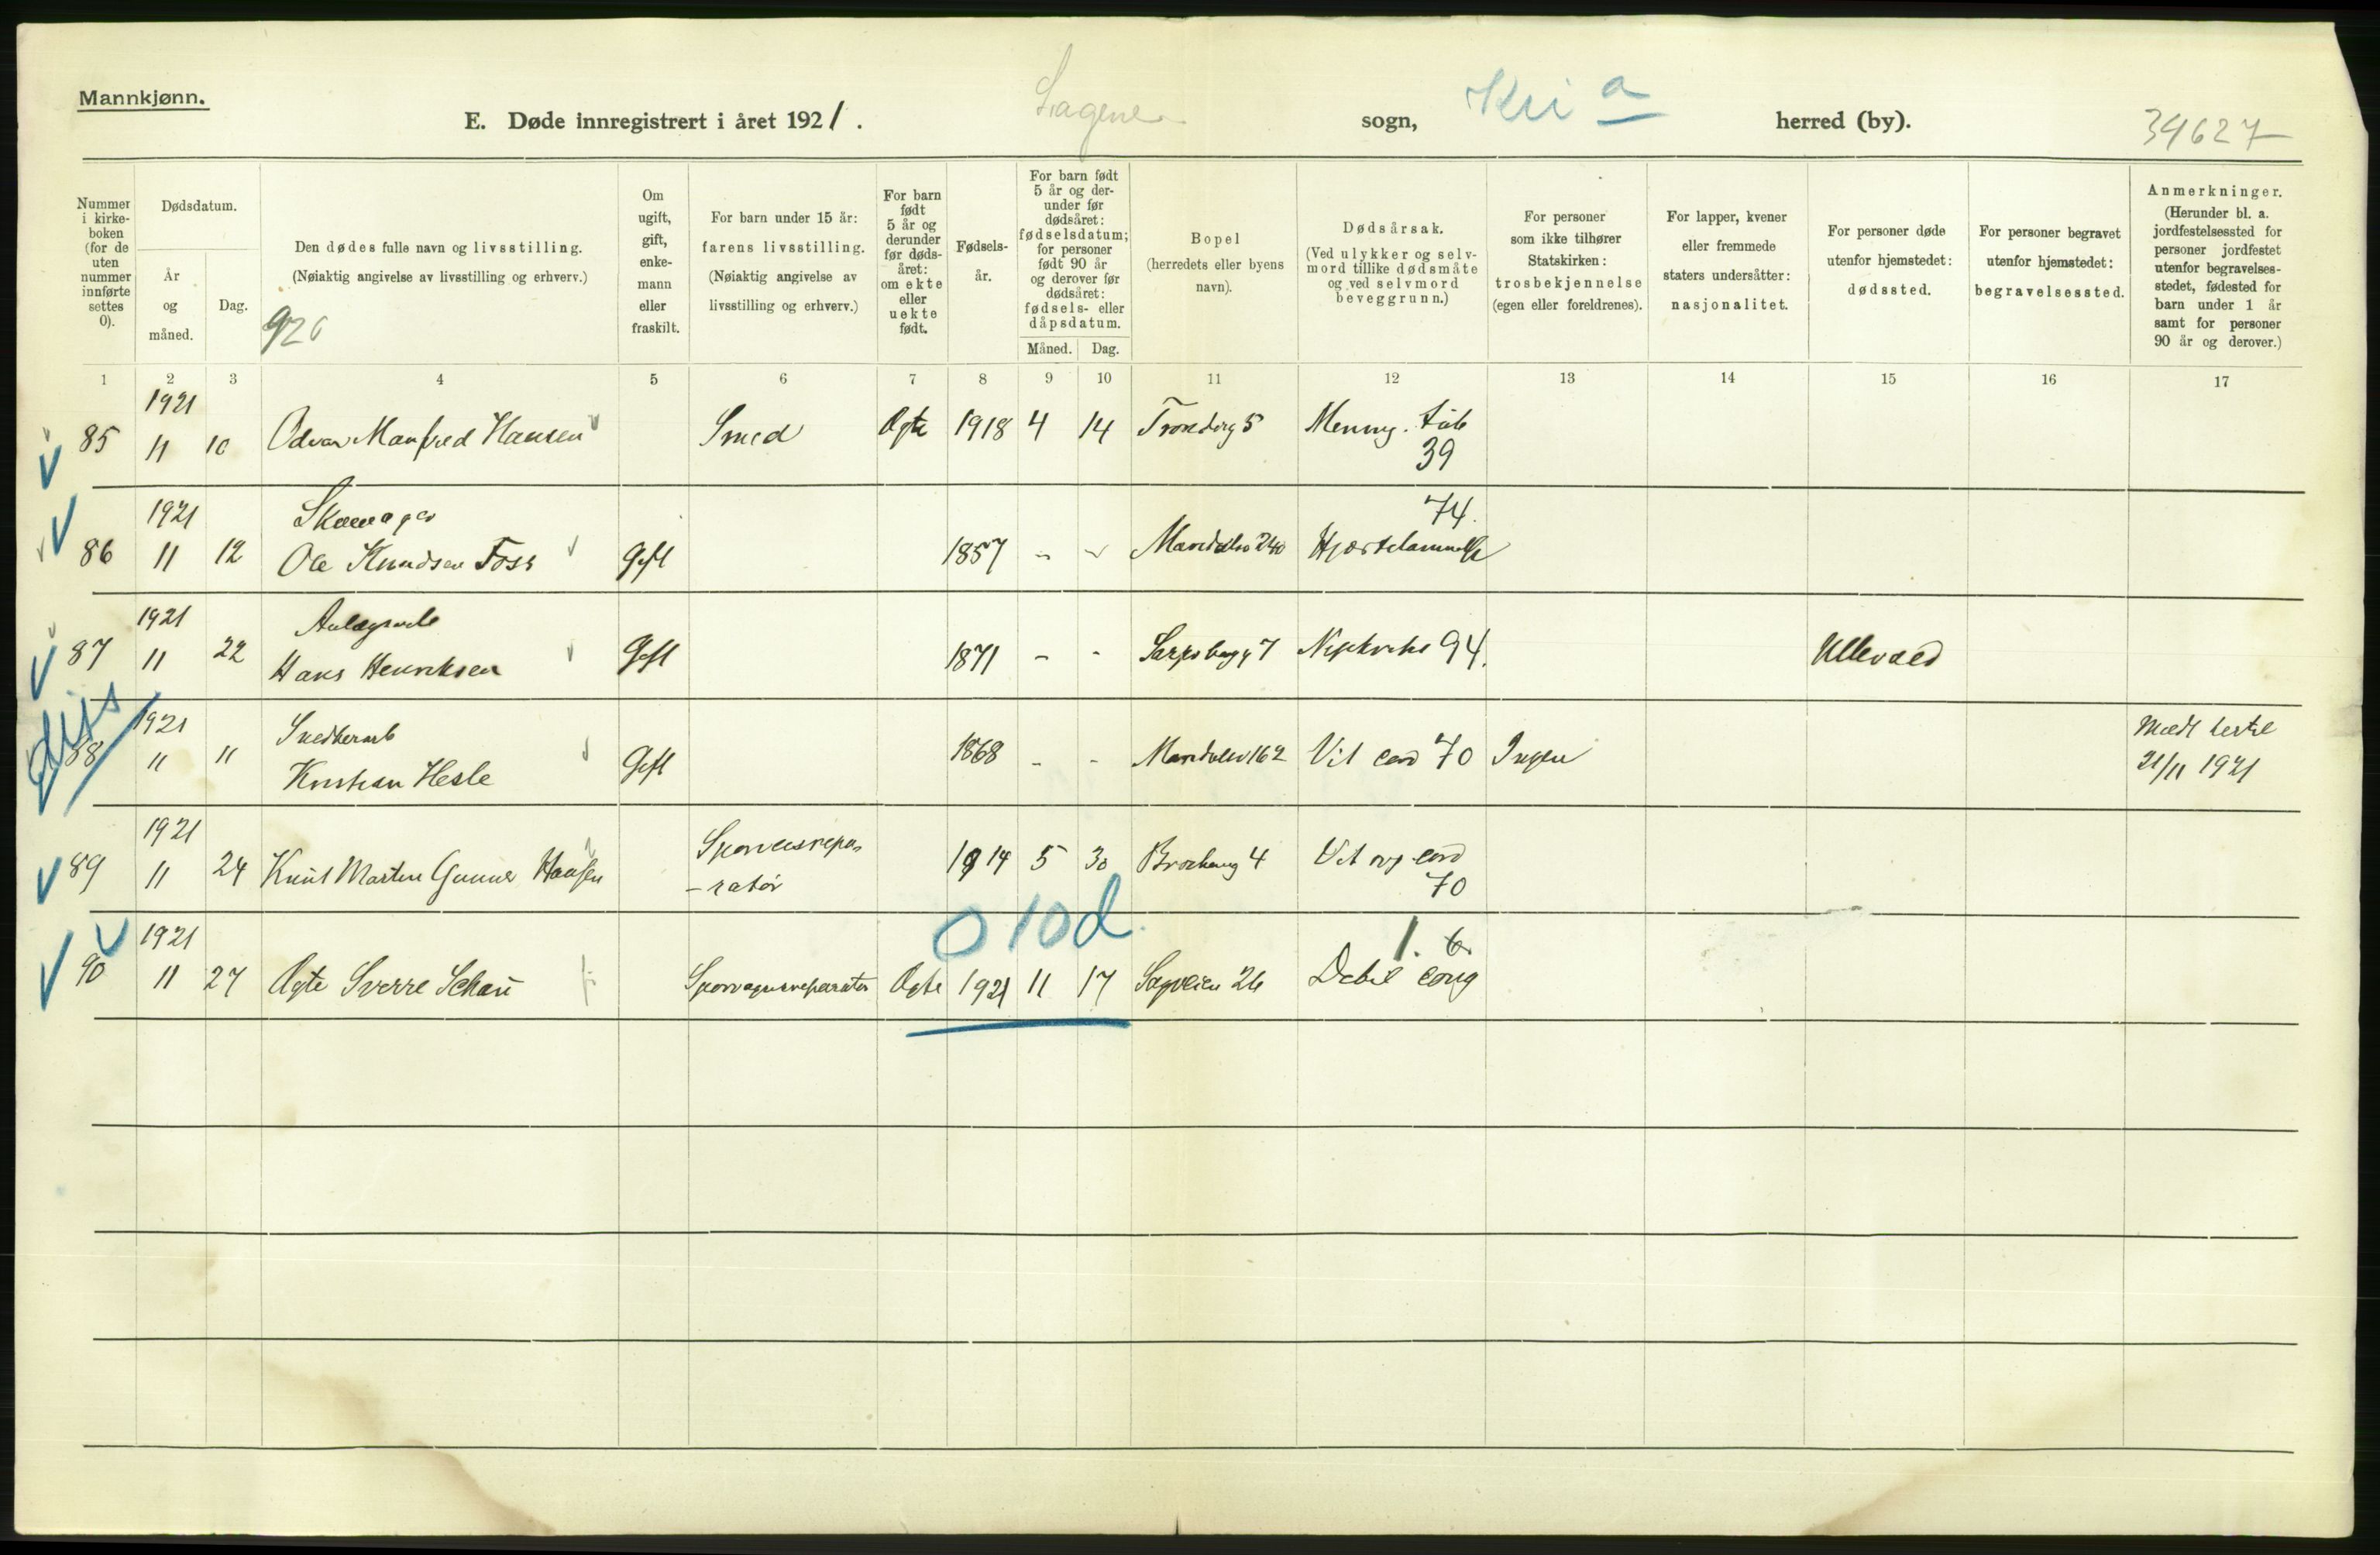 Mannkjønn.
E. Døde innregistrert i året 1921.
Sagene sogn, Kria herred (by).
34627
Nummer i kirke-boken (for de uten nummer innførte settes 0).
Dødsdatum.
År og måned.
Dag.
Den dødes fulle navn og livsstilling.
(Nøiaktig angivelse av livsstilling og erhverv.)
920
Om ugift, gift, enke-mann eller fraskilt.
For barn under 15 år:
farens livsstilling.
(Nøiaktig angivelse av
livsstilling og erhverv.)
For barn født 5 år og derunder før døds-året: om ekte eller uekte født.
Fødsels-år.
For barn født 5 år og der-under før dødsåret: fødselsdatum; for personer født 90 år og derover før dødsåret: fødsels- eller dåpsdatum.
Måned. Dag.
Bopel
(herredets eller byens navn).
Dødsårsak.
(Ved ulykker og selv-mord tillike dødsmåte og ved selvmord beveggrunn.)
For personer som ikke tilhører Statskirken:
trosbekjennelse
(egen eller foreldrenes).
For lapper, kvener eller fremmede staters undersåtter:
nasjonalitet.
For personer døde utenfor hjemstedet:
dødssted.
For personer begravet utenfor hjemstedet:
begravelsessted.
Anmerkninger.
(Herunder bl. a. jordfestelsessted for personer jordfestet utenfor begravelses-stedet, fødested for barn under 1 år samt for personer 90 år og derover.)
1 2 3 4 5 6 7 8 9 10 11 12 13 14 15 16 17
1921
85 11 10 Odvar Manfred Hansen Smed Ægte 1918 4 14 Menny. tub
39
1921 Skomager 74.
86 11 12 Ole Knudsen Foss Gift 1857 - - Maridalsv 240 Hjertelammelse
1921
87 11 22 Hans Henriksen Gift 1871 - - Sarpsborgg 7 94. Ullevaal
diss
1921 Snedkerarb
88 11 11 Kristian Hesle Gift 1868 - - Maridalsv 162 Vit cord 70 Ingen
21/11 1921
1921 Sporveisrepa-
89 11 24 Knut Martin Gunnar Hansen -ratør 1914 5 30 4 Vit org cord
70
0 10d.
1921 1. 6.
90 11 27 Ægte Sverre Schau Sporvognsreparatør Ægte 1921 11 17 Sagveien 26 Debil cong